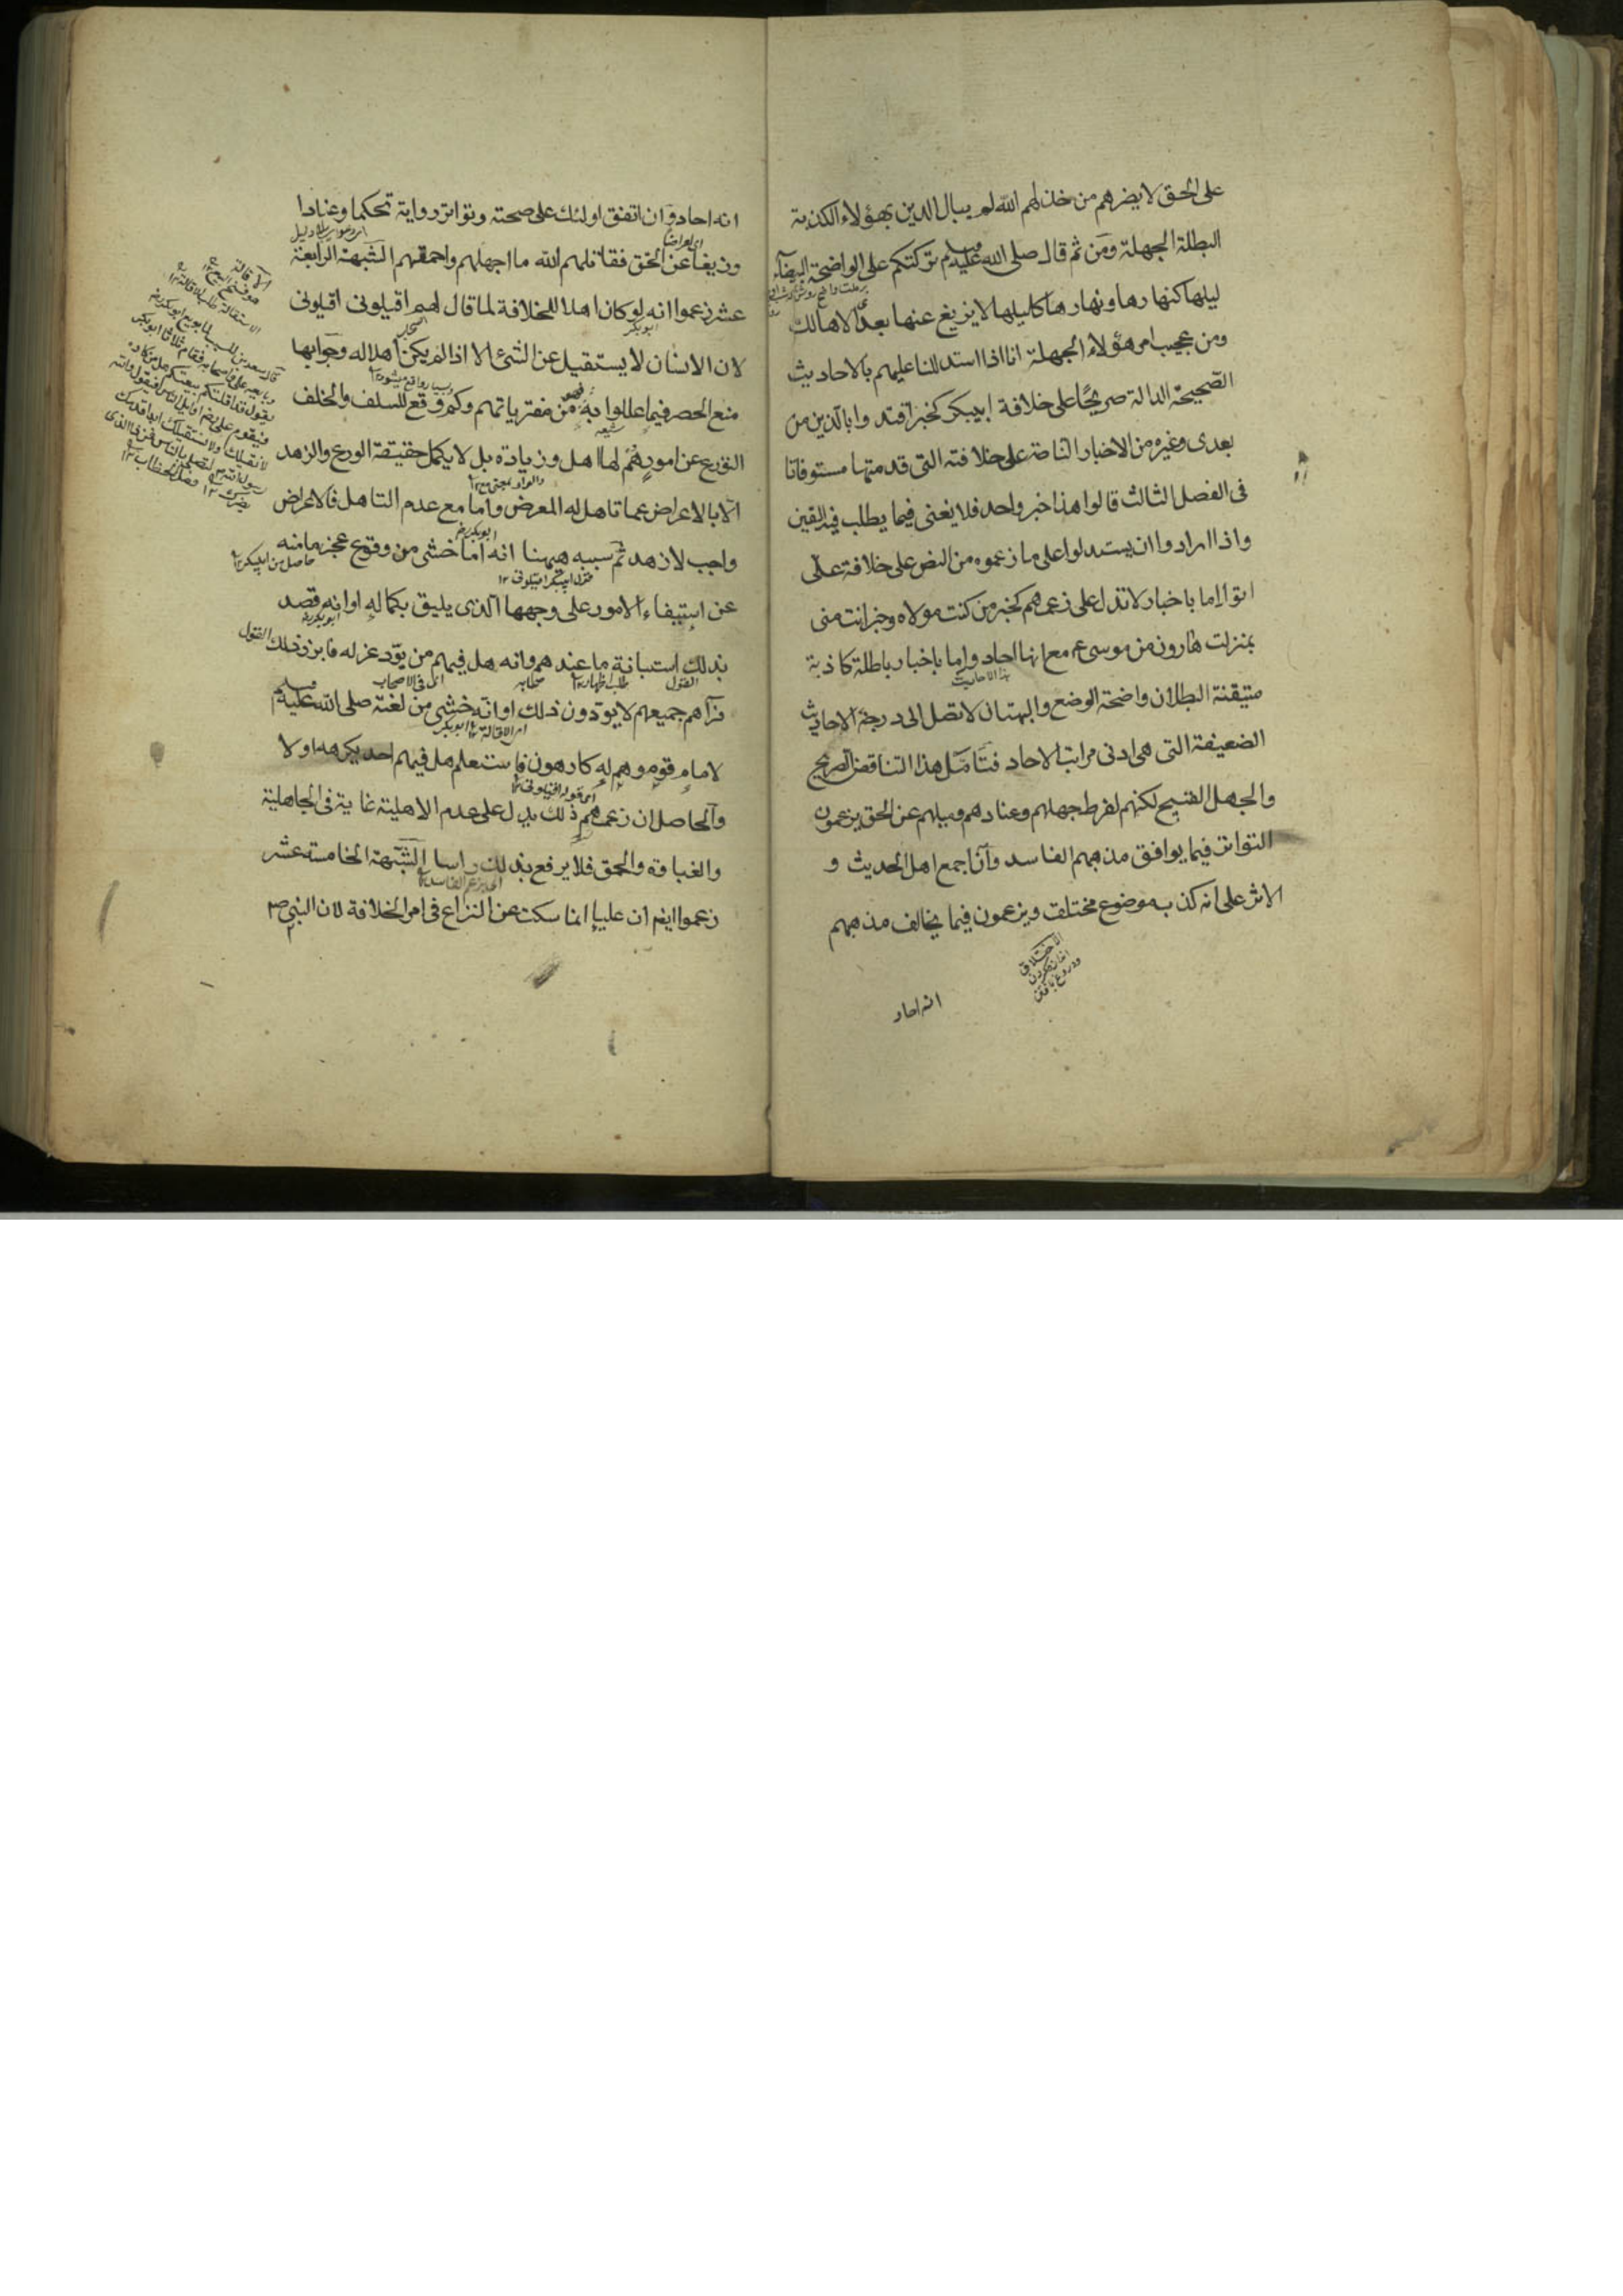 على الحق لا يضرهم من خذلهم الله لم يبال الدين بهؤلاء الكذبة
البطلة الجهلة ومن ثم قال صلى الله عليه وسلم تركتكم على الواضحة البيضآء
ليلها كنهارها ونهارها كليلها لا يزيغ عنها بعدى الا هالك
ومن عجيب امر هؤلاء الجهلة انا اذا استدللنا عليهم بالاحاديث
الصحيحة الدالة صريحًا على خلافة ابيبكر كخبر اقتدوا بالذين من
بعدى وغيره من الاخبار الناصة على خلافته التى قدمتها مستوفاتا
فى الفصل الثالث قالوا هذا خبر واحد فلا يغنى فيما يطلب فيه اليقين
واذا ارادوا ان يستدلوا على ما زعموه من النص على خلافة على
اتوا اما باخبار لا تدل على زعمهم كخبر من كنت مولاه وخبر انت منى
بمنزلت هارون من موسى ع مع انها احاد واما باخبار باطلة كاذبة
هذا الاحاديث
متيقنة البطلان واضحة الوضع والبهتان لا تصل الى درجة الاحاديث
الضعيفة التى هى ادنى مراتب الاحاد فتأمّل هذا التناقض الصريح
والجهل القبيح لكنهم لفرط جهلهم وعنادهم وميلهم عن الحق يزعمون
التواتر فيما يوافق مذهبهم الفاسد وان اجمع اهل الحديث و
الاثر على انه كذب موضوع مختلق ويزعمون فيما يخالف مذهبهم
الاختلاق
ودروغ بافتن
انه احاد
انه احاد وان اتفق اولئك على صحته وتواتر رواية تحكما وعنادا
اى اعراضا
وزيغا عن الحق فقاتلهم الله ما اجهلهم واحمقهم الشبهة الرابعة
عشر زعموا انه لو كان اهلا للخلافة لما قال لهم اقيلونى اقيلونى
ابوبكر
لان الانسان لا يستقيل عن الشئ الا اذا لم يكن اهلا له وجوابها
منع الحصر فيما عللوا به فهو من مفترياتهم وكم وقع للسلف والخلف
شيعه
التورع عن امور هم لها اهل وزيادة بل لا يكمل حقيقة الورع والزهد
الا بالاعراض عما تاهل له المعرض واما مع عدم التاهل فالاعراض
ابوبكر
واجب لا زهد ثم سببه ههنا انه اما خشى من وقوع عجز ما منه
حاصل من ابيبكر
عن استيفاء الامور على وجهها الذى يليق بكماله او انه قصد
ابوبكر
بذلك استبانة ما عندهم وانه هل فيهم من يودّ عزله فابرز ذلك القول
القول
صحابه
اى فى الاصحاب
فرآهم جميعهم لا يودون ذلك او انه خشى من لعنته صلى الله عليه وسلم
امر الاقالة
ابوبكر
لامام قوم وهم له كارهون فاستعلم هل فيهم احد يكرهه او لا
اى قوله اقيلونى
والحاصل ان زعمهم ذلك يدل على عدم الاهلية غاية فى الجاهلية
والغباوة والحمق فلا يرفع بذلك راسا الشبهة الخامسة عشر
زعموا ايضا ان عليا انما سكت عن النزاع فى امر الخلافة لان النبى ص
الاقالة
هو فسخ البيع
الاستقالة طلب الاقالة